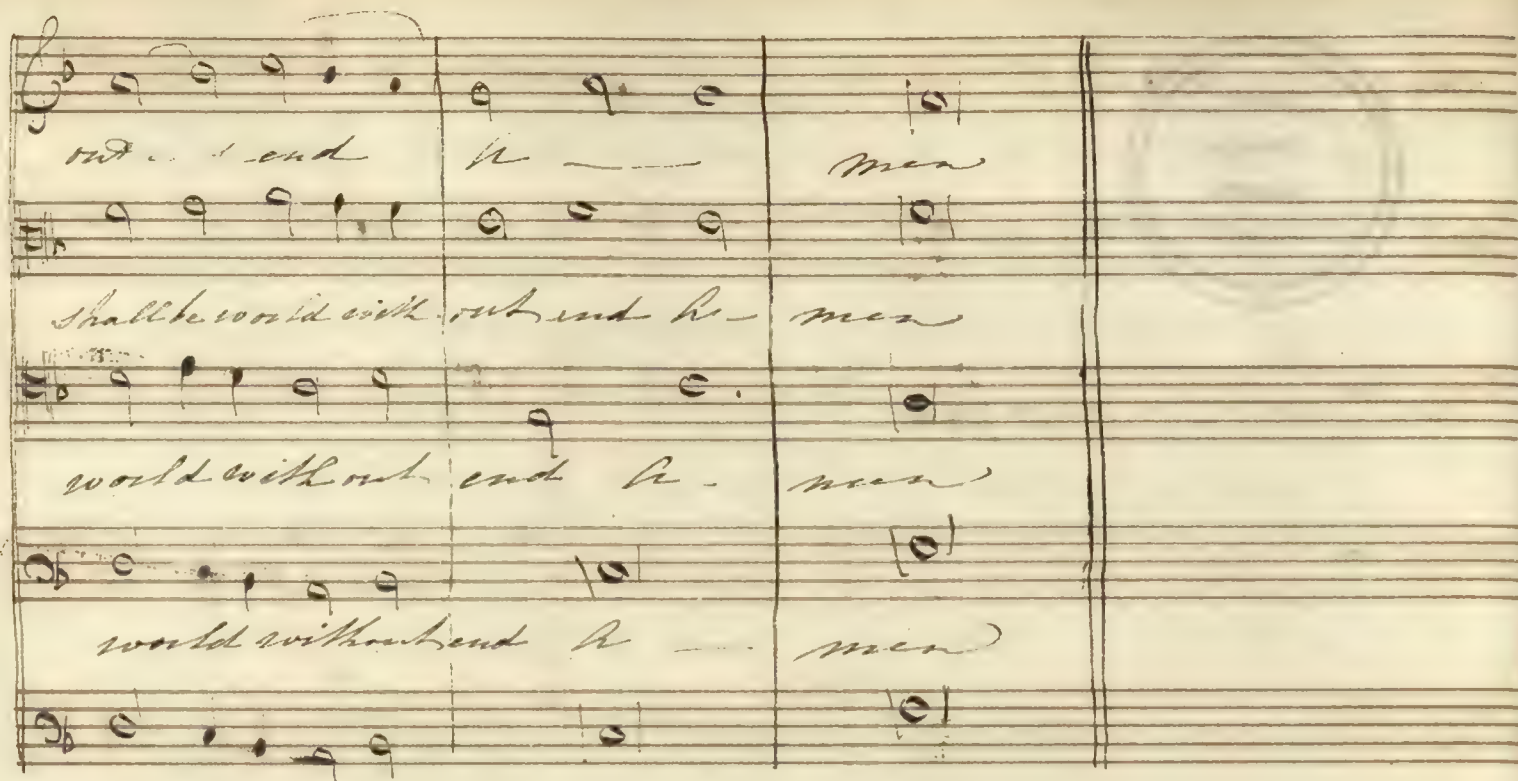 out end A men
shall be world with out end A - men
world without end A - men
world without end A men